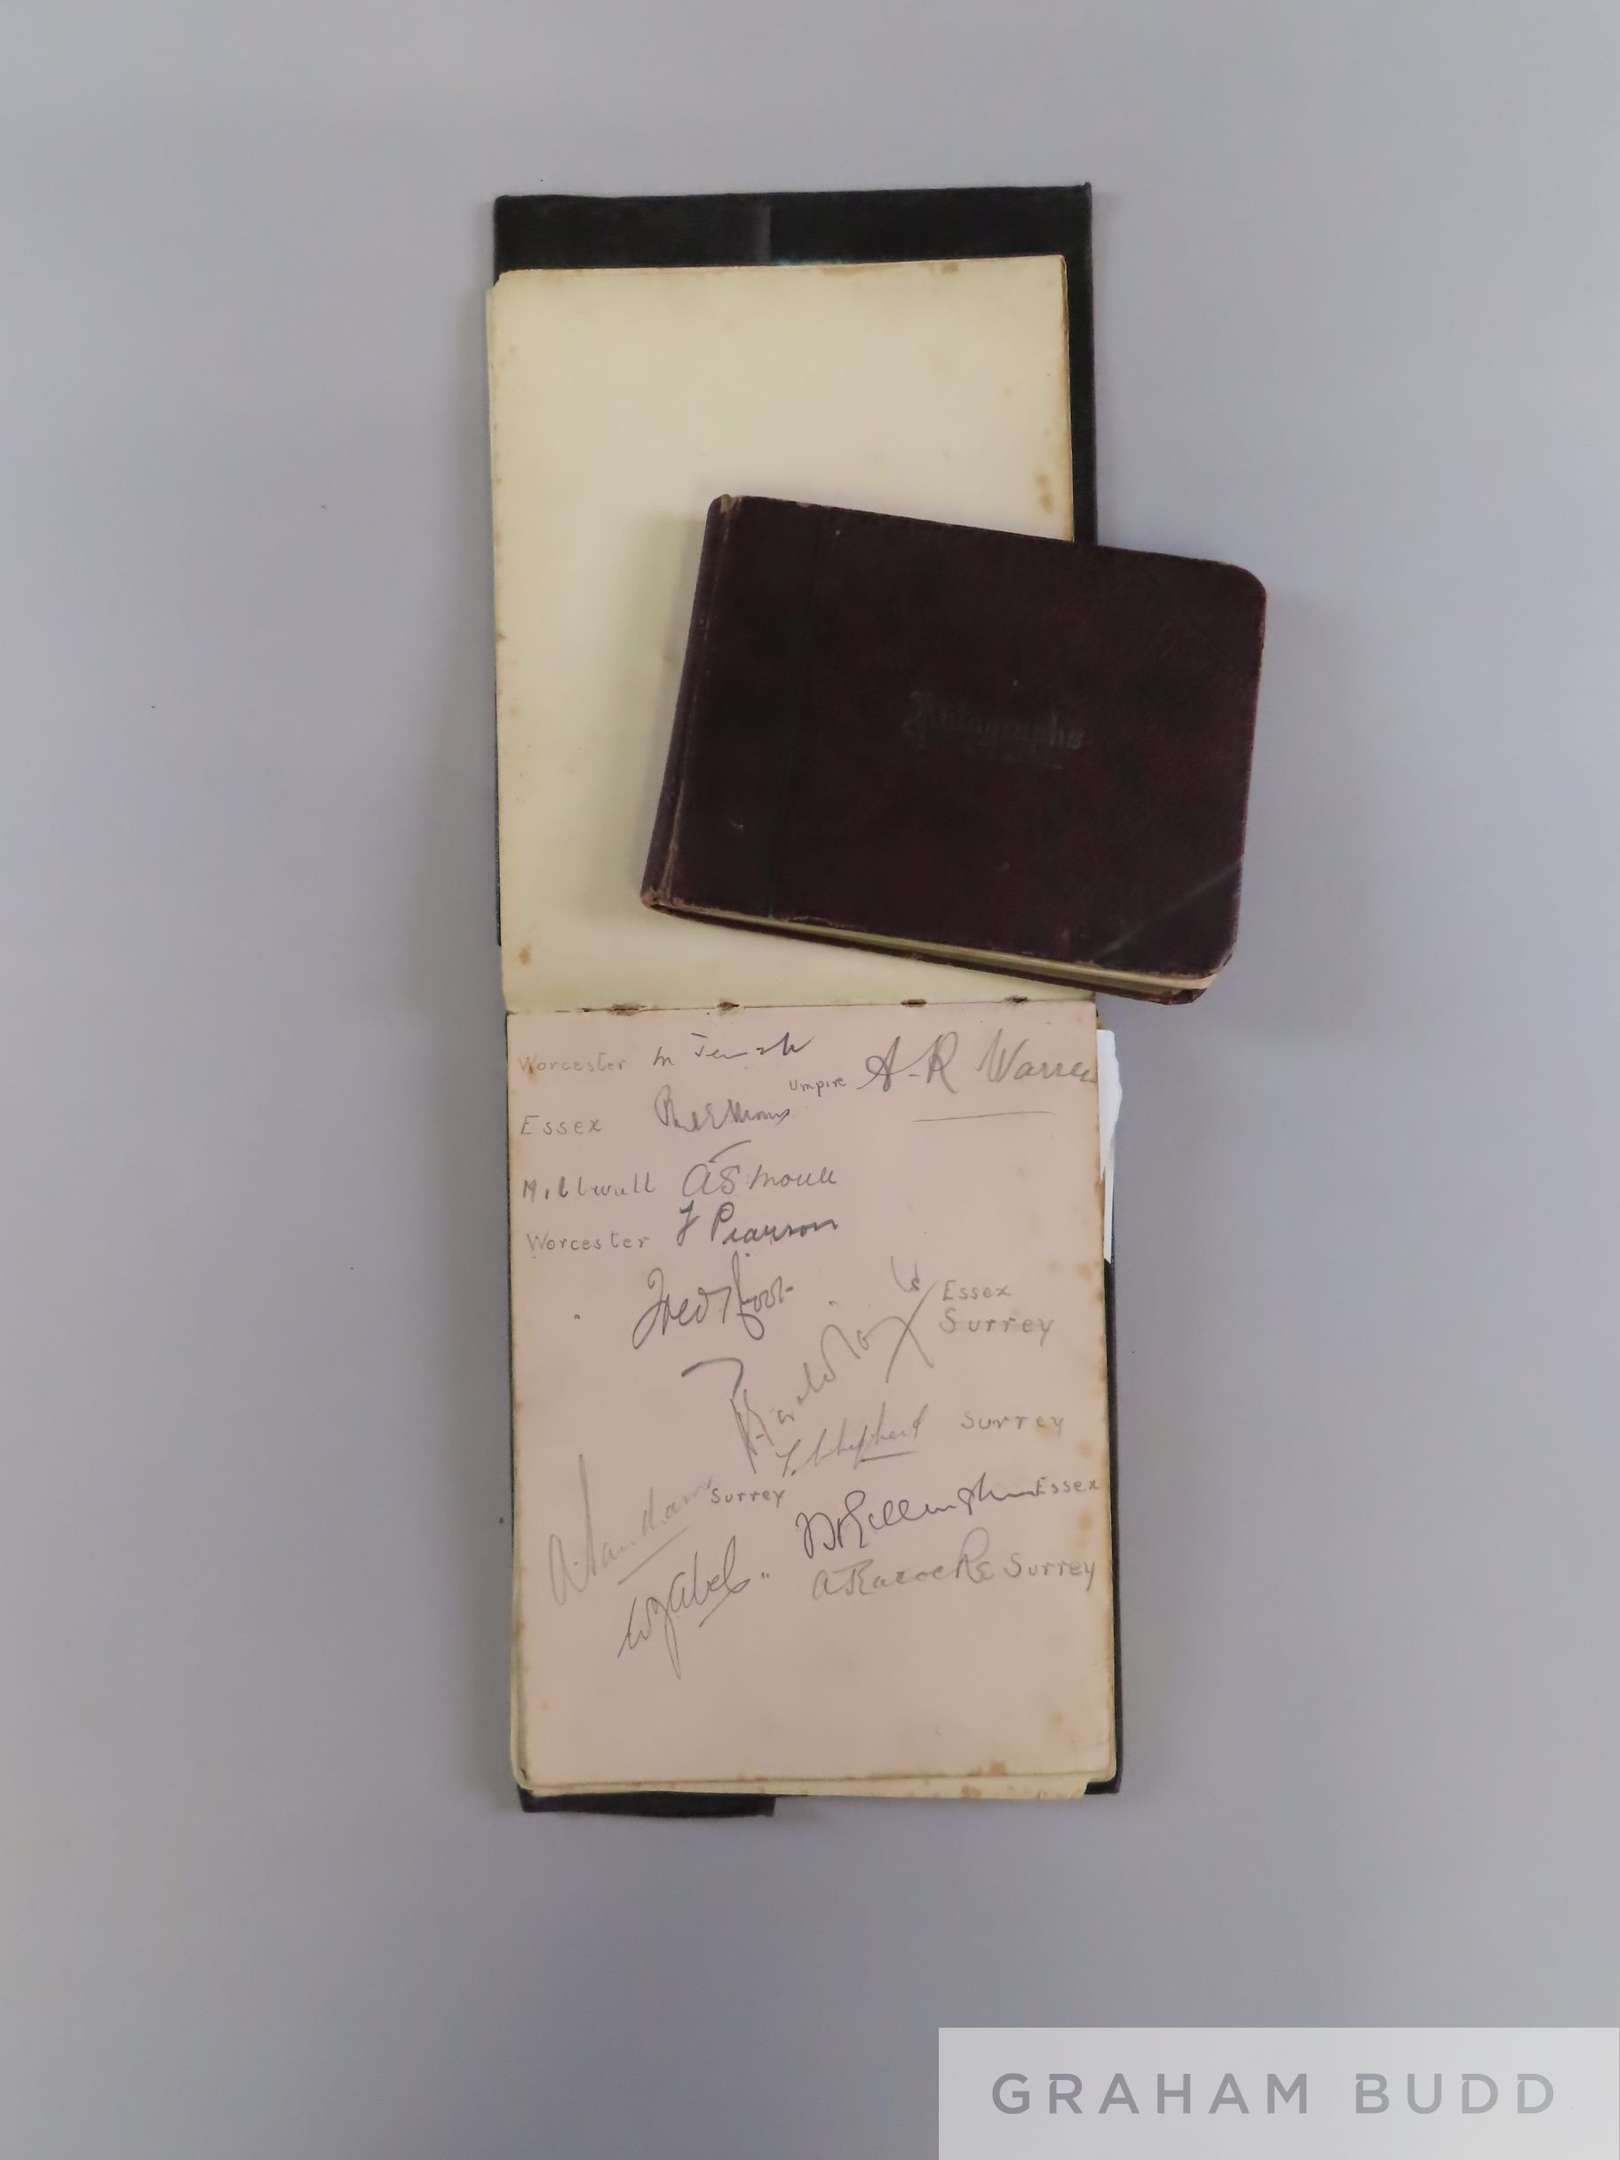 Autographs
Worcester M Jewell
Umpire A-R Warren
Essex
Millwall A S Moule
Worcester F Pearson
" Fred Root
Essex
Vs
Surrey
Harold
T. Shepherd Surrey
A. Sandham Surrey
Essex
W J Abel "
A Peach Surrey
GRAHAM BUDD